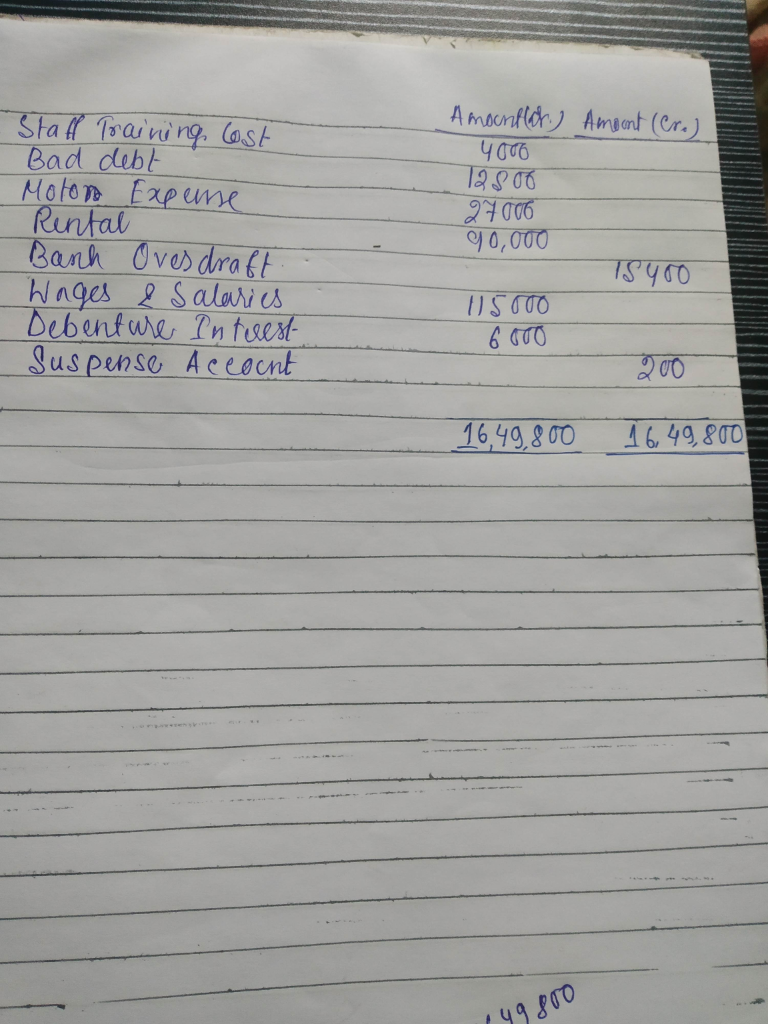 Amount(Dr.) Amount (Cr.)
Staff Training Cost 4000
Bad debt 12800
Motor Expense 27000
Rental 90,000
Bank Overdraft 15400
Wages & Salaries 115000
Debenture Interest 6000
Suspense Account 200
16,49,800 16,49,800
49800